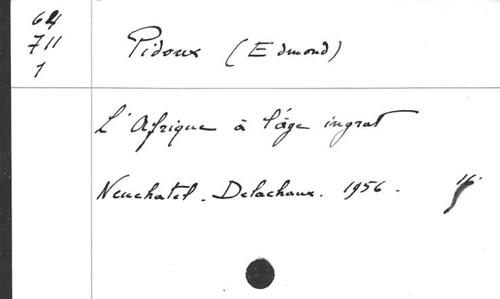 64
711
1
Pidoux (Edmond)
L'Afrique à l'âge ingrat
Neuchatel. Delachaux. 1956.